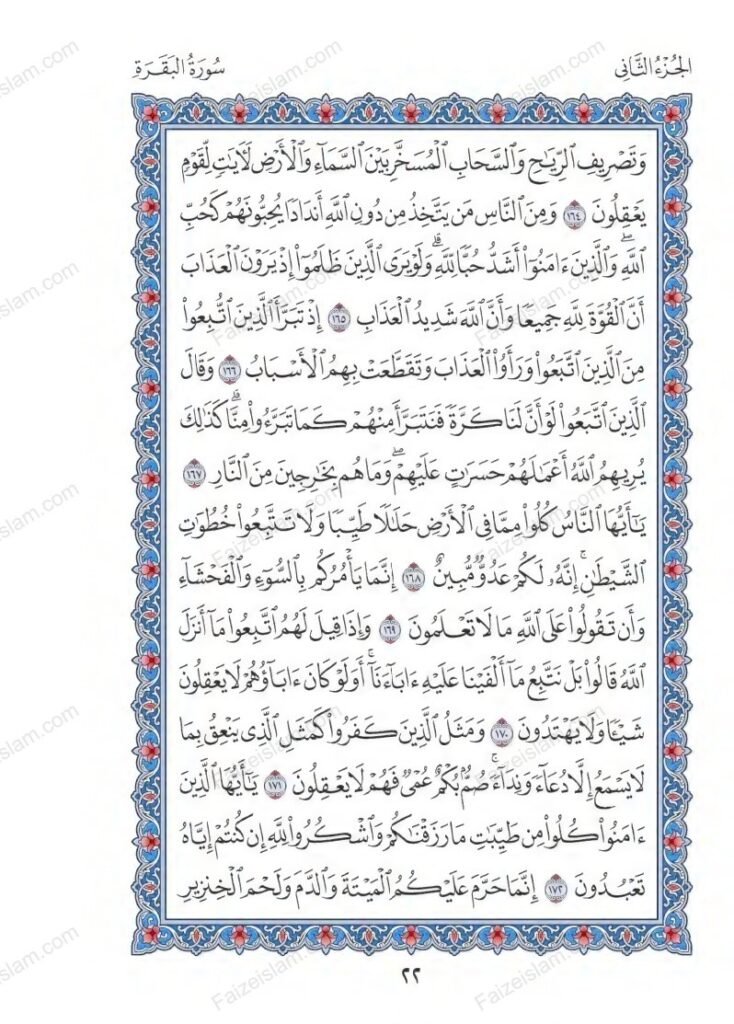 الجُزْءُ الثَّانِي
سُورَةُ البَقَرَةِ
وَتَصْرِيفِ ٱلرِّيَٰحِ وَٱلسَّحَابِ ٱلْمُسَخَّرِ بَيْنَ ٱلسَّمَآءِ وَٱلْأَرْضِ لَأٓيَٰتٍ لِّقَوْمٍ
يَعْقِلُونَ ١٦٤ وَمِنَ ٱلنَّاسِ مَن يَتَّخِذُ مِن دُونِ ٱللَّهِ أَندَادًا يُحِبُّونَهُمْ كَحُبِّ
ٱللَّهِۖ وَٱلَّذِينَ ءَامَنُوٓا۟ أَشَدُّ حُبًّا لِّلَّهِۗ وَلَوْ يَرَى ٱلَّذِينَ ظَلَمُوٓا۟ إِذْ يَرَوْنَ ٱلْعَذَابَ
أَنَّ ٱلْقُوَّةَ لِلَّهِ جَمِيعًا وَأَنَّ ٱللَّهَ شَدِيدُ ٱلْعَذَابِ ١٦٥ إِذْ تَبَرَّأَ ٱلَّذِينَ ٱتُّبِعُوا۟
مِنَ ٱلَّذِينَ ٱتَّبَعُوا۟ وَرَأَوُا۟ ٱلْعَذَابَ وَتَقَطَّعَتْ بِهِمُ ٱلْأَسْبَابُ ١٦٦ وَقَالَ
ٱلَّذِينَ ٱتَّبَعُوا۟ لَوْ أَنَّ لَنَا كَرَّةً فَنَتَبَرَّأَ مِنْهُمْ كَمَا تَبَرَّءُوا۟ مِنَّاۗ كَذَٰلِكَ
يُرِيهِمُ ٱللَّهُ أَعْمَٰلَهُمْ حَسَرَٰتٍ عَلَيْهِمْۖ وَمَا هُم بِخَٰرِجِينَ مِنَ ٱلنَّارِ ١٦٧
يَٰٓأَيُّهَا ٱلنَّاسُ كُلُوا۟ مِمَّا فِى ٱلْأَرْضِ حَلَٰلًا طَيِّبًا وَلَا تَتَّبِعُوا۟ خُطُوَٰتِ
ٱلشَّيْطَٰنِۚ إِنَّهُۥ لَكُمْ عَدُوٌّ مُّبِينٌ ١٦٨ إِنَّمَا يَأْمُرُكُم بِٱلسُّوٓءِ وَٱلْفَحْشَآءِ
وَأَن تَقُولُوا۟ عَلَى ٱللَّهِ مَا لَا تَعْلَمُونَ ١٦٩ وَإِذَا قِيلَ لَهُمُ ٱتَّبِعُوا۟ مَآ أَنزَلَ
ٱللَّهُ قَالُوا۟ بَلْ نَتَّبِعُ مَآ أَلْفَيْنَا عَلَيْهِ ءَابَآءَنَآۗ أَوَلَوْ كَانَ ءَابَآؤُهُمْ لَا يَعْقِلُونَ
شَيْـًٔا وَلَا يَهْتَدُونَ ١٧٠ وَمَثَلُ ٱلَّذِينَ كَفَرُوا۟ كَمَثَلِ ٱلَّذِى يَنْعِقُ بِمَا
لَا يَسْمَعُ إِلَّا دُعَآءً وَنِدَآءًۚ صُمٌّۢ بُكْمٌ عُمْىٌ فَهُمْ لَا يَعْقِلُونَ ١٧١ يَٰٓأَيُّهَا ٱلَّذِينَ
ءَامَنُوا۟ كُلُوا۟ مِن طَيِّبَٰتِ مَا رَزَقْنَٰكُمْ وَٱشْكُرُوا۟ لِلَّهِ إِن كُنتُمْ إِيَّاهُ
تَعْبُدُونَ ١٧٢ إِنَّمَا حَرَّمَ عَلَيْكُمُ ٱلْمَيْتَةَ وَٱلدَّمَ وَلَحْمَ ٱلْخِنزِيرِ
٢٢
Faizeislam.com